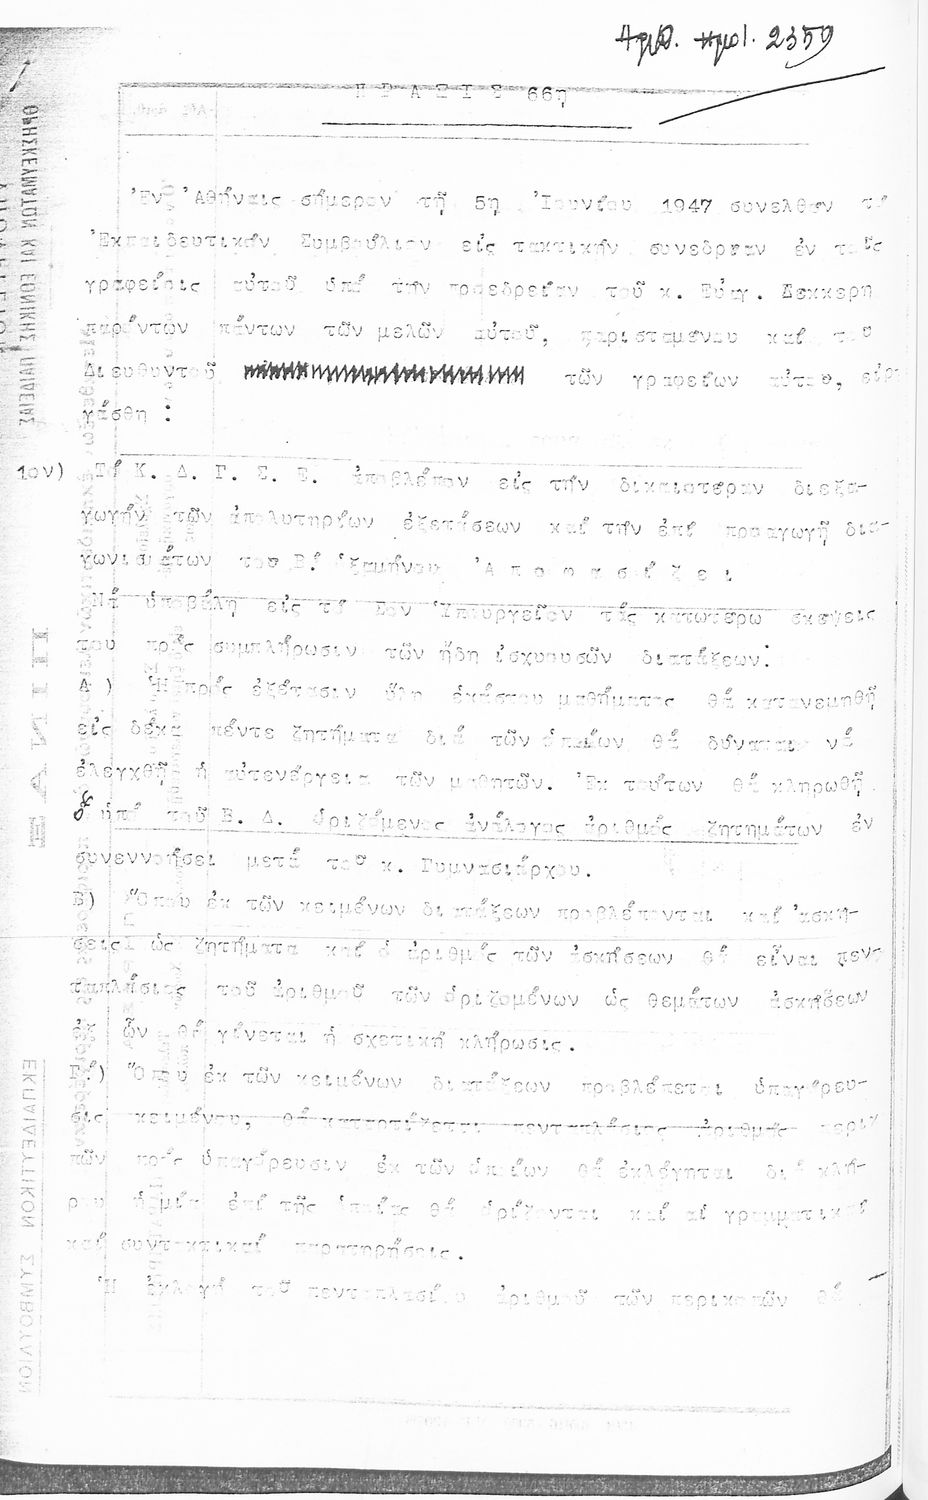 Ἀριθ. πρωτ. 2359
Π Ρ Α Ξ Ι Σ 66η
Ἐν Ἀθήναις σήμερον τῇ 5η Ἰουνίου 1947 συνελθόν τό
Ἐκπαιδευτικόν Συμβούλιον εἰς τακτικήν συνεδρίαν ἐν τοῖς
γραφείοις αὐτοῦ ὑπό τήν προεδρείαν τοῦ κ. Εὐαγ. Δεκκερη
παρόντων πάντων τῶν μελῶν αὐτοῦ, παρισταμένου καί τοῦ
Διευθυντοῦ τῶν γραφείων αὐτοῦ, εἰρ
γάσθη :
1ον) Τό Κ. Δ. Γ. Σ. Ε. ἀποβλέπον εἰς τήν δικαιοτέραν διεξα-
γωγήν τῶν ἀπολυτηρίων ἐξετάσεων καί τήν ἐπί προαγωγῇ δια-
γωνισμάτων τοῦ Β! ἑξαμήνου Ἀ π ο φ α σ ί ζ ε ι
Νά ὑποβάλη εἰς τό Σον Ὑπουργεῖον τάς κατωτέρω σκέψεις
του πρός συμπλήρωσιν τῶν ἤδη ἰσχυουσῶν διατάξεων:
Α ) Ἡ πρός ἐξέτασιν ὕλη ἑκάστου μαθήματος θά κατανεμηθῇ
εἰς δέκα πέντε ζητήματα διά τῶν ὁποίων θά δύναται νά
ἐλεγχθῇ ἡ αὐτενέργεια τῶν μαθητῶν. Ἐκ τούτων θά κληρωθῇ
ὑπό τοῦ Β. Δ. ὁριζόμενος ἀνάλογος ἀριθμός ζητημάτων ἐν
συνεννοήσει μετά τοῦ κ. Γυμνασιάρχου.
Β) Ὅπου ἐκ τῶν κειμένων διατάξεων προβλέπονται καί ἀσκή-
σεις ὡς ζητήματα καί ὁ ἀριθμός τῶν ἀσκήσεων θά εἶναι πεντ
ταπλάσιος τοῦ ἀριθμοῦ τῶν ὁριζομένων ὡς θεμάτων ἀσκήσεων
ἐξ ὧν θά γίνεται ἡ σχετική κλήρωσις.
Γ΄) Ὅπου ἐκ τῶν κειμένων διατάξεων προβλέπεται ὑπαγόρευ-
σις κειμένου, θά καταρτίζεται πενταπλάσιος ἀριθμός περικ
πῶν πρός ὑπαγόρευσιν ἐκ τῶν ὁποίων θά ἐκλέγηται διά κλή-
ρου ἡ μία ἐπί τῆς ὁποίας θά ὁρίζονται καί αἱ γραμματικαί
καί συντακτικαί παρατηρήσεις.
Ἡ ἐκλογή τοῦ πενταπλασίου ἀριθμοῦ τῶν περικοπῶν θά
ΘΡΗΣΚΕΥΜΑΤΩΝ ΚΑΙ ΕΘΝΙΚΗΣ ΠΑΙΔΕΙΑΣ
ΕΚΠΑΙΔΕΥΤΙΚΟΝ ΣΥΜΒΟΥΛΙΟΝ